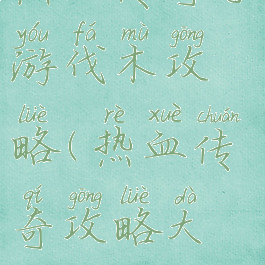 yóu fá mù gōng
游伐木攻
lüè rè xuè chuán
略(热血传
qí gōng lüè dà
奇攻略大